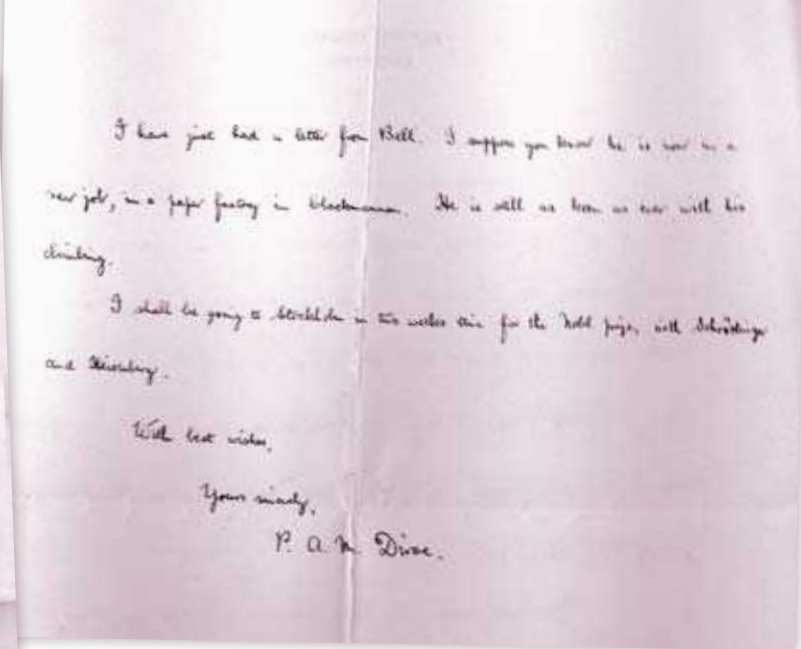 I have just had a letter from Bell. I suppose you know he is now in a
new job, in a paper factory in
He is still as keen as ever with his
climbing.
I shall be going to Stockholm in two weeks time for the Nobel prize, with Schrödinger
and Heisenberg.
With best wishes,
Yours sincerely,
P. A. M. Dirac.